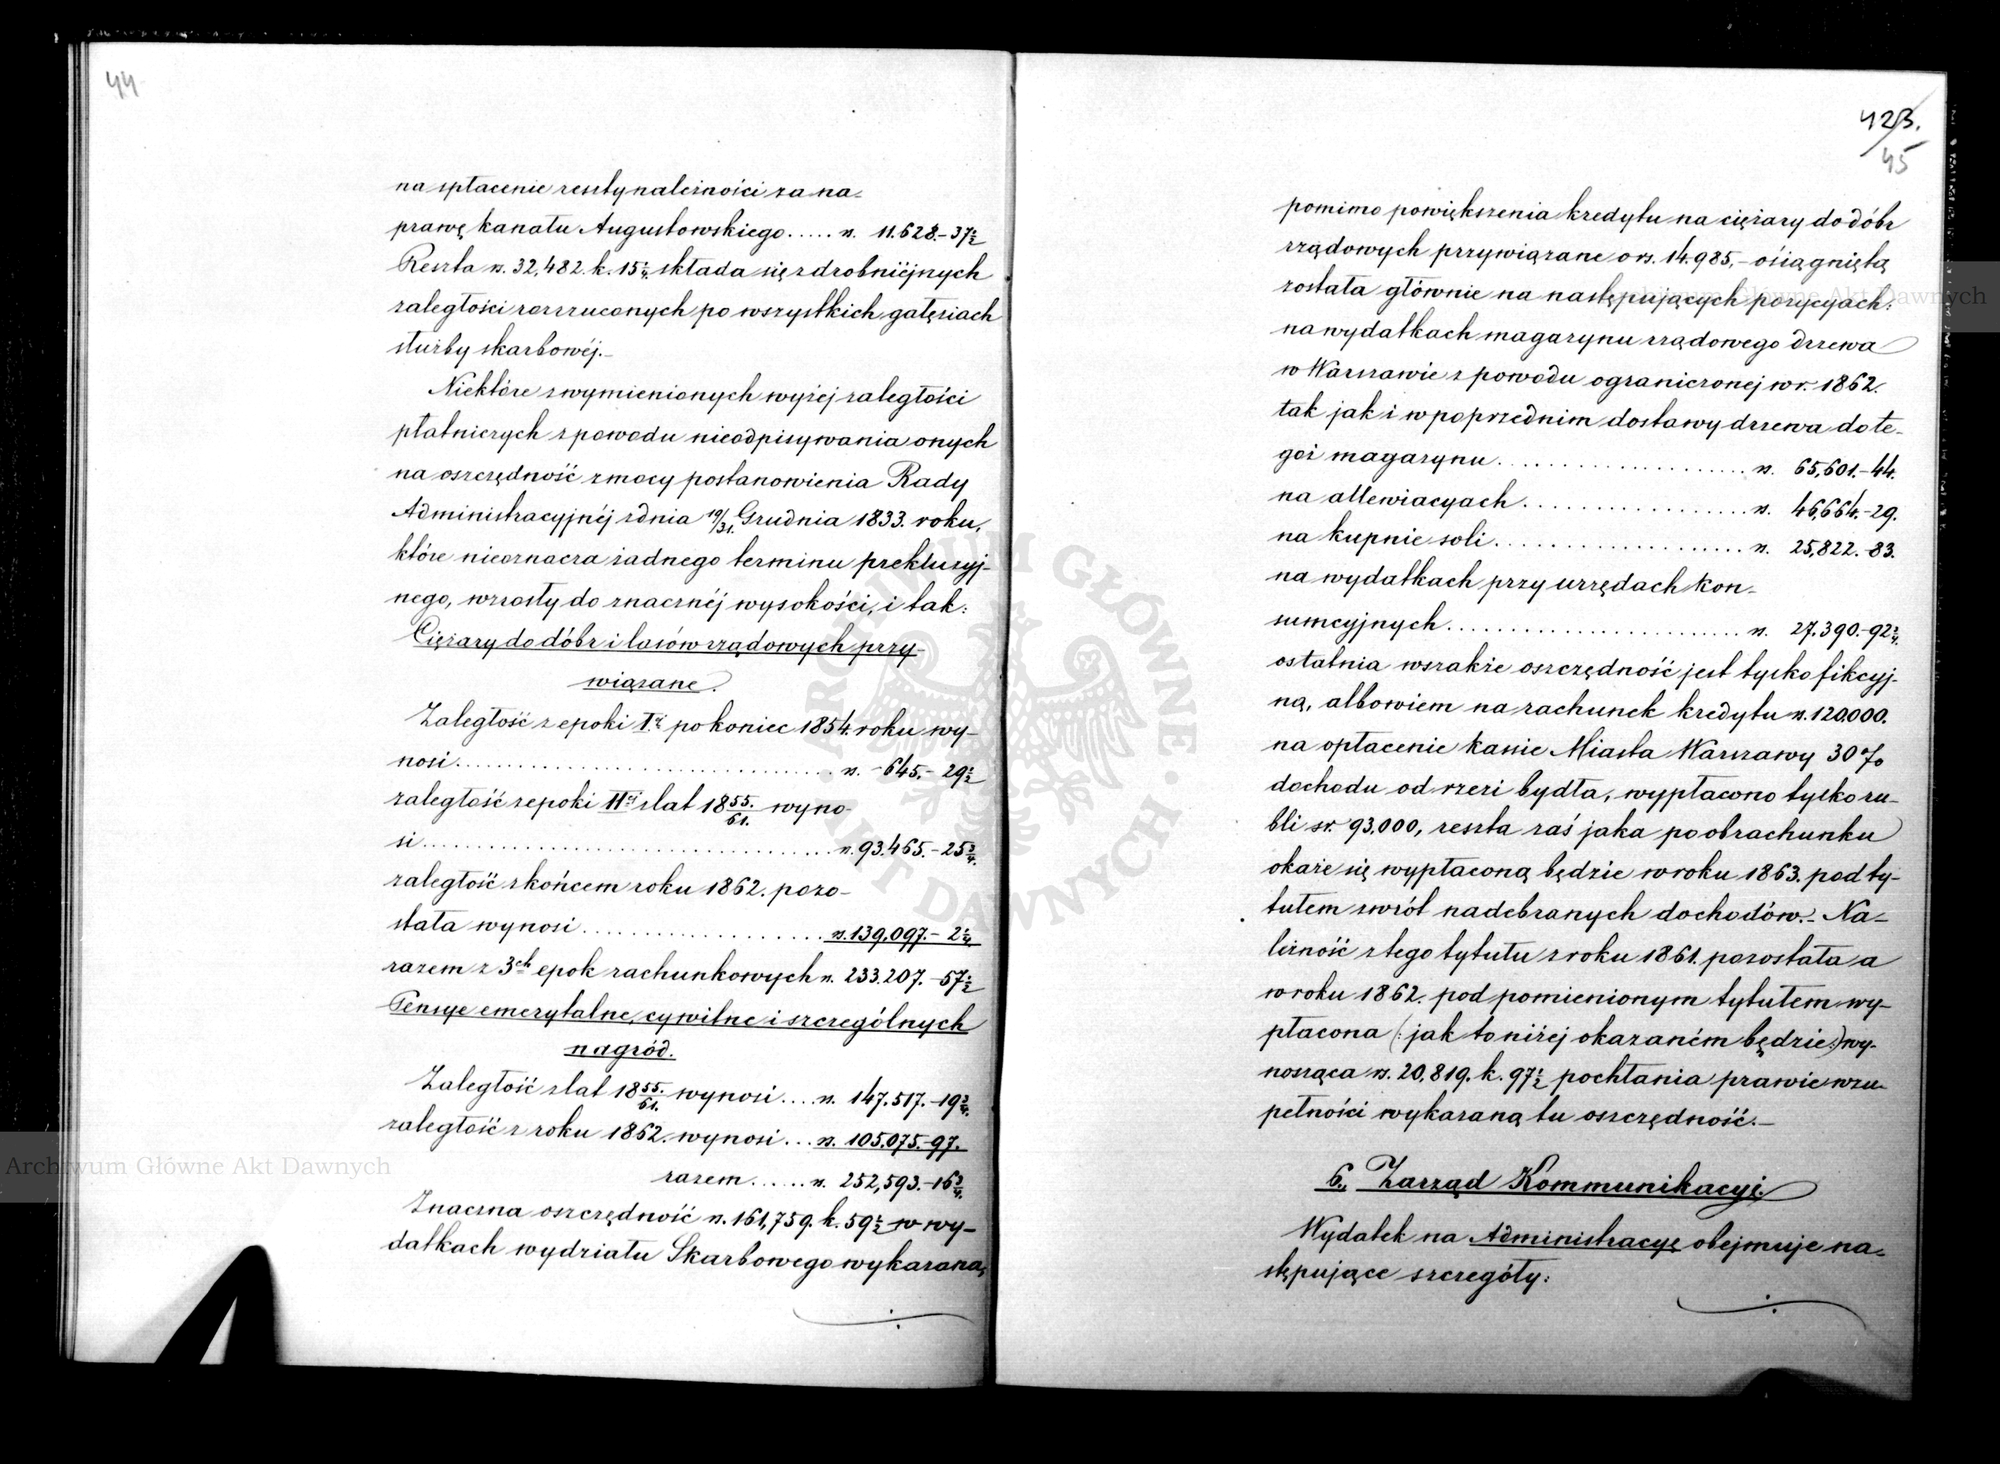 44
na spłacenie reszty należności za na-
prawę kanału Augustowskiego..... rs. 11.628.-37½
Reszta rs. 32,482. k. 15¼ składa się z drobniéjnych
zaległości rozrzuconych po wszystkich gałęziach
służby skarbowéj.-
Niektóre z wymienionych wyżéj zaległości
płatniczych z powodu nieodpisywania onych
na oszczędność z mocy postanowienia Rady
Administracyjnéj z dnia 19/31. Grudnia 1833. roku,
które nieoznacza żadnego terminu prekluzyj-
nego, wzrosły do znacznéj wysokości, i tak:
Ciężary do dóbr i lasów rządowych przy-
wiązane.
Zaległość z epoki Iéj po koniec 1854. roku wy-
nosi................................ rs. -645.- 29½
zaległość z epoki IIéj z lat 18 55./61. wyno-
si................................ rs. 93.465.- 25¾.
zaległość z końcem roku 1862. pozo-
stała wynosi.................... rs. 139,097.- 2¼
razem z 3ch epok rachunkowych rs. 233.207.-57½
Pensye emerytalne, cywilne i szczególnych
nagród.
Zaległość z lat 18 55./61. wynosi.... rs. 147.517.-19¾.
zaległość z roku 1862. wynosi... rs. 105.075.-97.
razem...... rs. 252,593.-16¾.
Znaczna oszczędność rs. 161,759. k. 59½ w wy-
datkach wydziału Skarbowego wykazana,
423.
45
pomimo powiększenia kredytu na ciężary do dóbr
rządowych przywiązane o rs. 14.985,- osiągniętą
została głównie na następujących pozycyach:
na wydatkach magazynu rządowego drzewa
w Warszawie z powodu ograniczonej w r. 1862.
tak jak i w poprzednim dostawy drzewa do te-
goż magazynu........................ rs. 65,601.-44.
na allewiacyach.................... rs. 46,664.-29.
na kupnie soli....................... rs. 25,822.-83.
na wydatkach przy urzędach kon-
sumcyjnych.......................... rs. 27.390.-92¾.
ostatnia wszakże oszczędność jest tylko fikcyj-
ną, albowiem na rachunek kredytu rs. 120.000.
na opłacenie kassie Miasta Warszawy 30%
dochodu od rzezi bydła, wypłacono tylko ru-
bli sr. 93,000, reszta zaś jaka po obrachunku
okaże się wypłaconą będzie w roku 1863. pod ty-
tułem zwrót nadebranych dochodów.- Na-
leżność z tego tytułu z roku 1861. pozostała a
w roku 1862. pod pomienionym tytułem wy-
płacona (: jak to niżéj okazaném będzie:) wy-
nosząca rs. 20,819. k. 97½ pochłania prawie w zu-
pełności wykazaną tu oszczędność.-
6., Zarząd Kommunikacyi.
Wydatek na Administracyę obejmuje na-
stępujące szczegóły:
Archiwum Główne Akt Dawnych
Archiwum Główne Akt Dawnych
ARCHIWUM GŁÓWNE AKT DAWNYCH